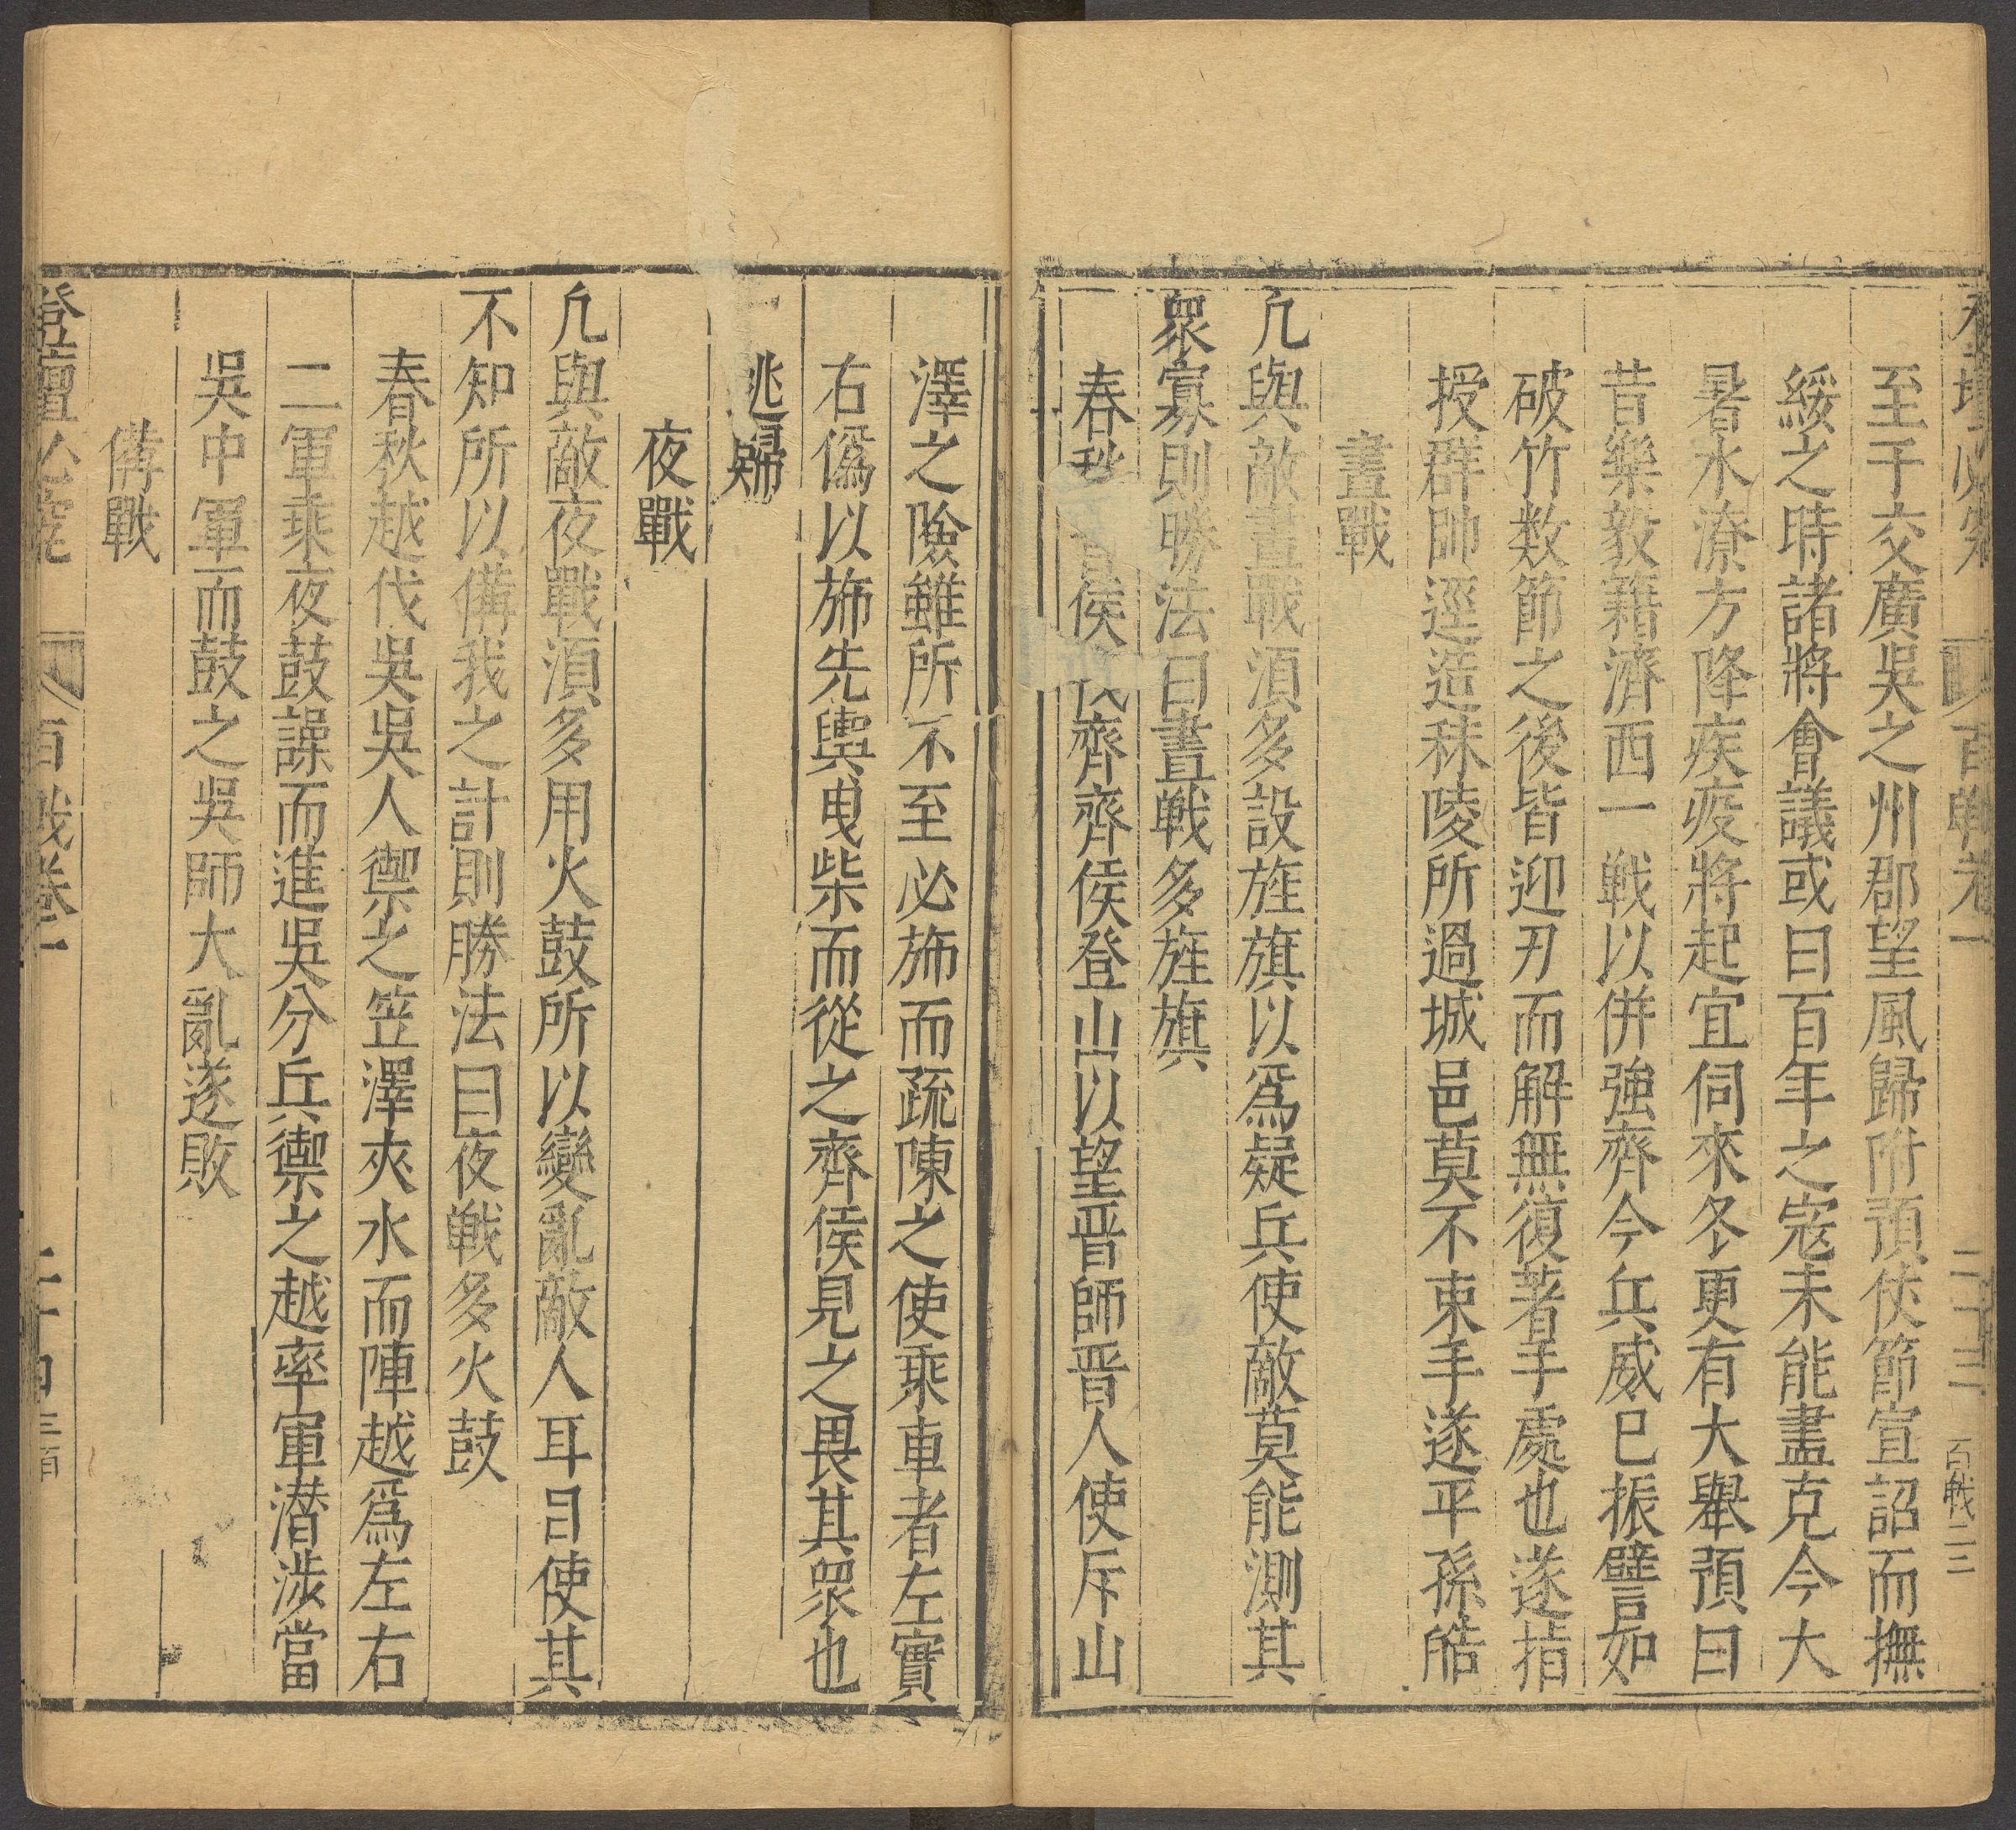 百戰卷一 二十三 百戦二三
至于交廣吳之州郡望風歸附預仗節宣詔而撫
綏之時諸將會議或曰百年之寇未能盡克今大
暑水潦方降疾疫將起宜伺來冬更有大舉預曰
昔樂毅藉濟西一戦以併強齊今兵威已振譬如
破竹数節之後皆迎刃而解無復著手處也遂指
授群帥逕造秣陵所過城邑莫不束手遂平孫皓
晝戰
凢與敵晝戰須多設旌旗以爲疑兵使敵莫能測其
衆寡則勝法曰晝戦多旌旗
春秋晉侯伐齊齊侯登山以望晋師晋人使斥山
澤之險雖所不至必斾而疏陳之使乘車者左實
右僞以斾先輿曳柴而從之齊侯見之畏其衆也
逃歸
夜戰
凢與敵夜戰須多用火鼓所以變亂敵人耳目使其
不知所以備我之計則勝法曰夜戦多火鼓
春秋越伐吳吳人禦之笠澤夾水而陣越爲左右
二軍乘夜鼓譟而進吳分兵禦之越率軍潜涉當
吳中軍而鼓之吳師大亂遂敗
備戰
登壇必究 百戰卷一 二十四